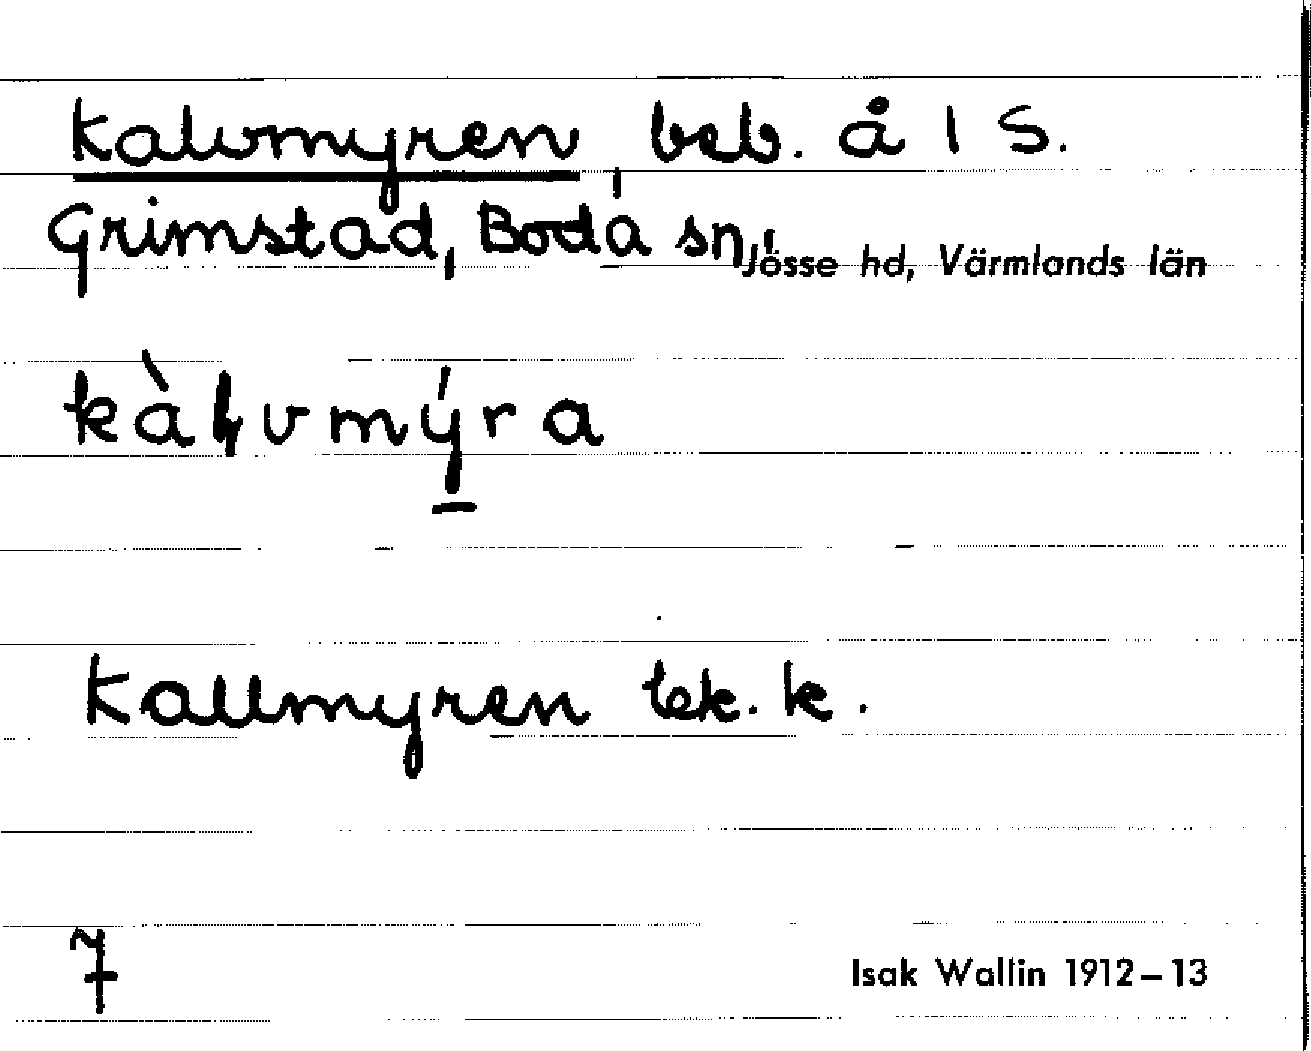 Kalvmyren, beb. å 1 S.
Grimstad, Boda sn, Jösse hd, Värmlands län
kàɫvmýra
Kallmyren ek. k.
7
Isak Wallin 1912–13